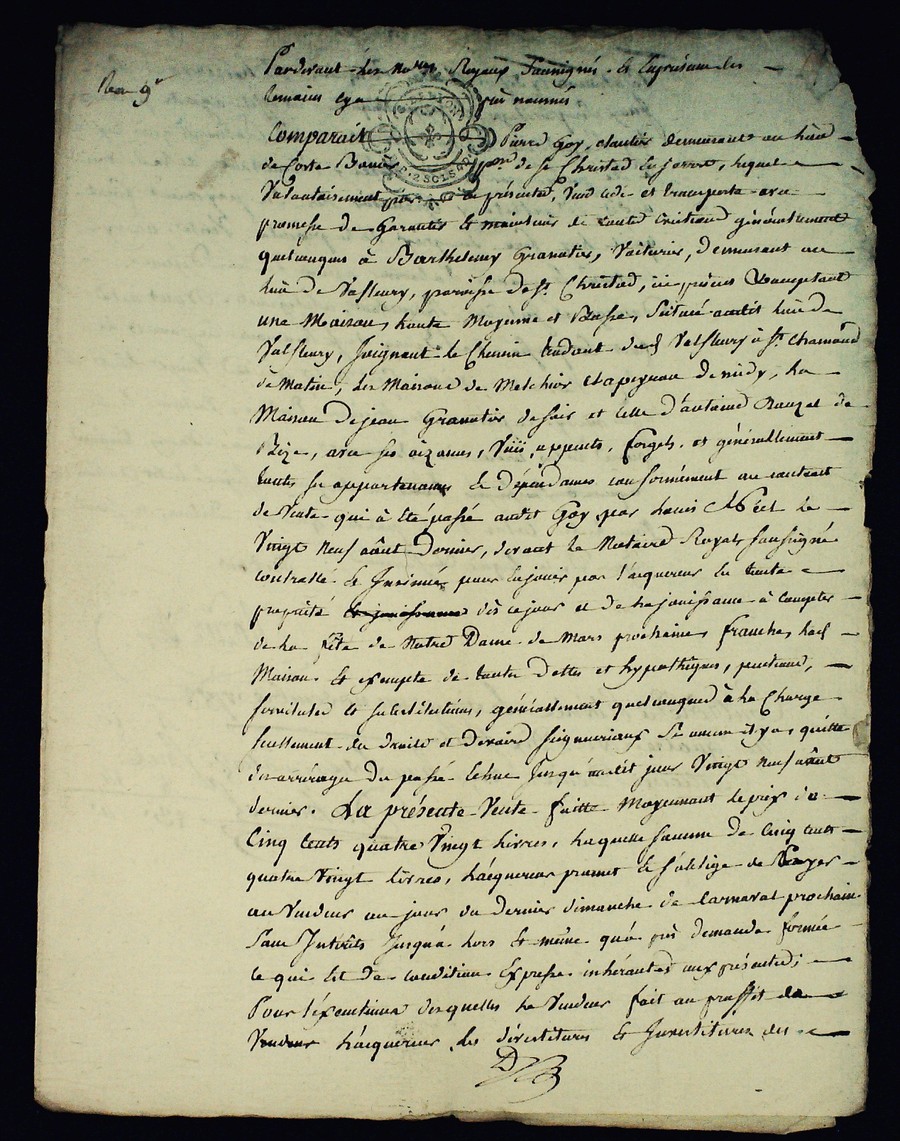 Pardevant les no.res Royaux Soussignés. Et En présence des
temoins cy a près nommés
Comparait Pierre Goy, demeurant au lieu
de Coste par.sse de st Christod en Jarret, lequel
Volontairement présentes, Vend cede et transporte avec
promesse de Garantir Et maintenir de toutes Evictions généralement
quelconques à Barthelemy Granatier, Voiturier, demeurant au
lieu de Valfleury, paroisse de st. Christod, icy présent Vacceptant
une Maison, haute Moyenne et Basse, Scituée audit lieu de
Valfleury, Joignant le Chemin tendant de Valfleury à st. Chamond
de Matin, les Maisons de Melchior Chapeyron de midy, La
Maison de jean Granatier de soir et Celle d'antoine Rouzet de
Bize, avec ses aizances, appents, forgets, et généralement
toutes ses appartenances Et dépendances conformément au contract
de Vente qui à été passé audit Goy par Louis le
Vingt neuf aôut Dernier, devant le Notaire Royal soussigné
contrallé Et Insinué pour En jouir par l'acquereur En toute
propriété dès ce jour et de La jouissance à Compter
de La fête de Notre Dame de Mars prochaine, franche, lad.
Maison. Et exempte de toutes Dettes et hypothèques, pentions,
servitudes Et substitutions, généralement quelconques à La Charge
seullement des Droits et Devoirs seigneuriaux Si aucun il y a, quitte
des arrérages du passé Echus Jusqu'audit jour Vingt neuf aôut
dernier. La présente Vente faitte Moyennant le prix de
Cinq Cents quatre Vingt Livres, Laquelle somme de Cinq Cents
quatre Vingt Livres, L'acquereur promet Et s'oblige de Payer
au Vendeur au jour du dernier dimanche de Carnaval prochain
sans Intérêts Jusqu'à Lors Et même qu'après demande formée
ce qui Est de condition Expresse inhérantes aux présentes;
Pour l'éxecutions desquelles Le Vendeur fait au proffit de
L'acquereur les dévestitures Et Investitures des